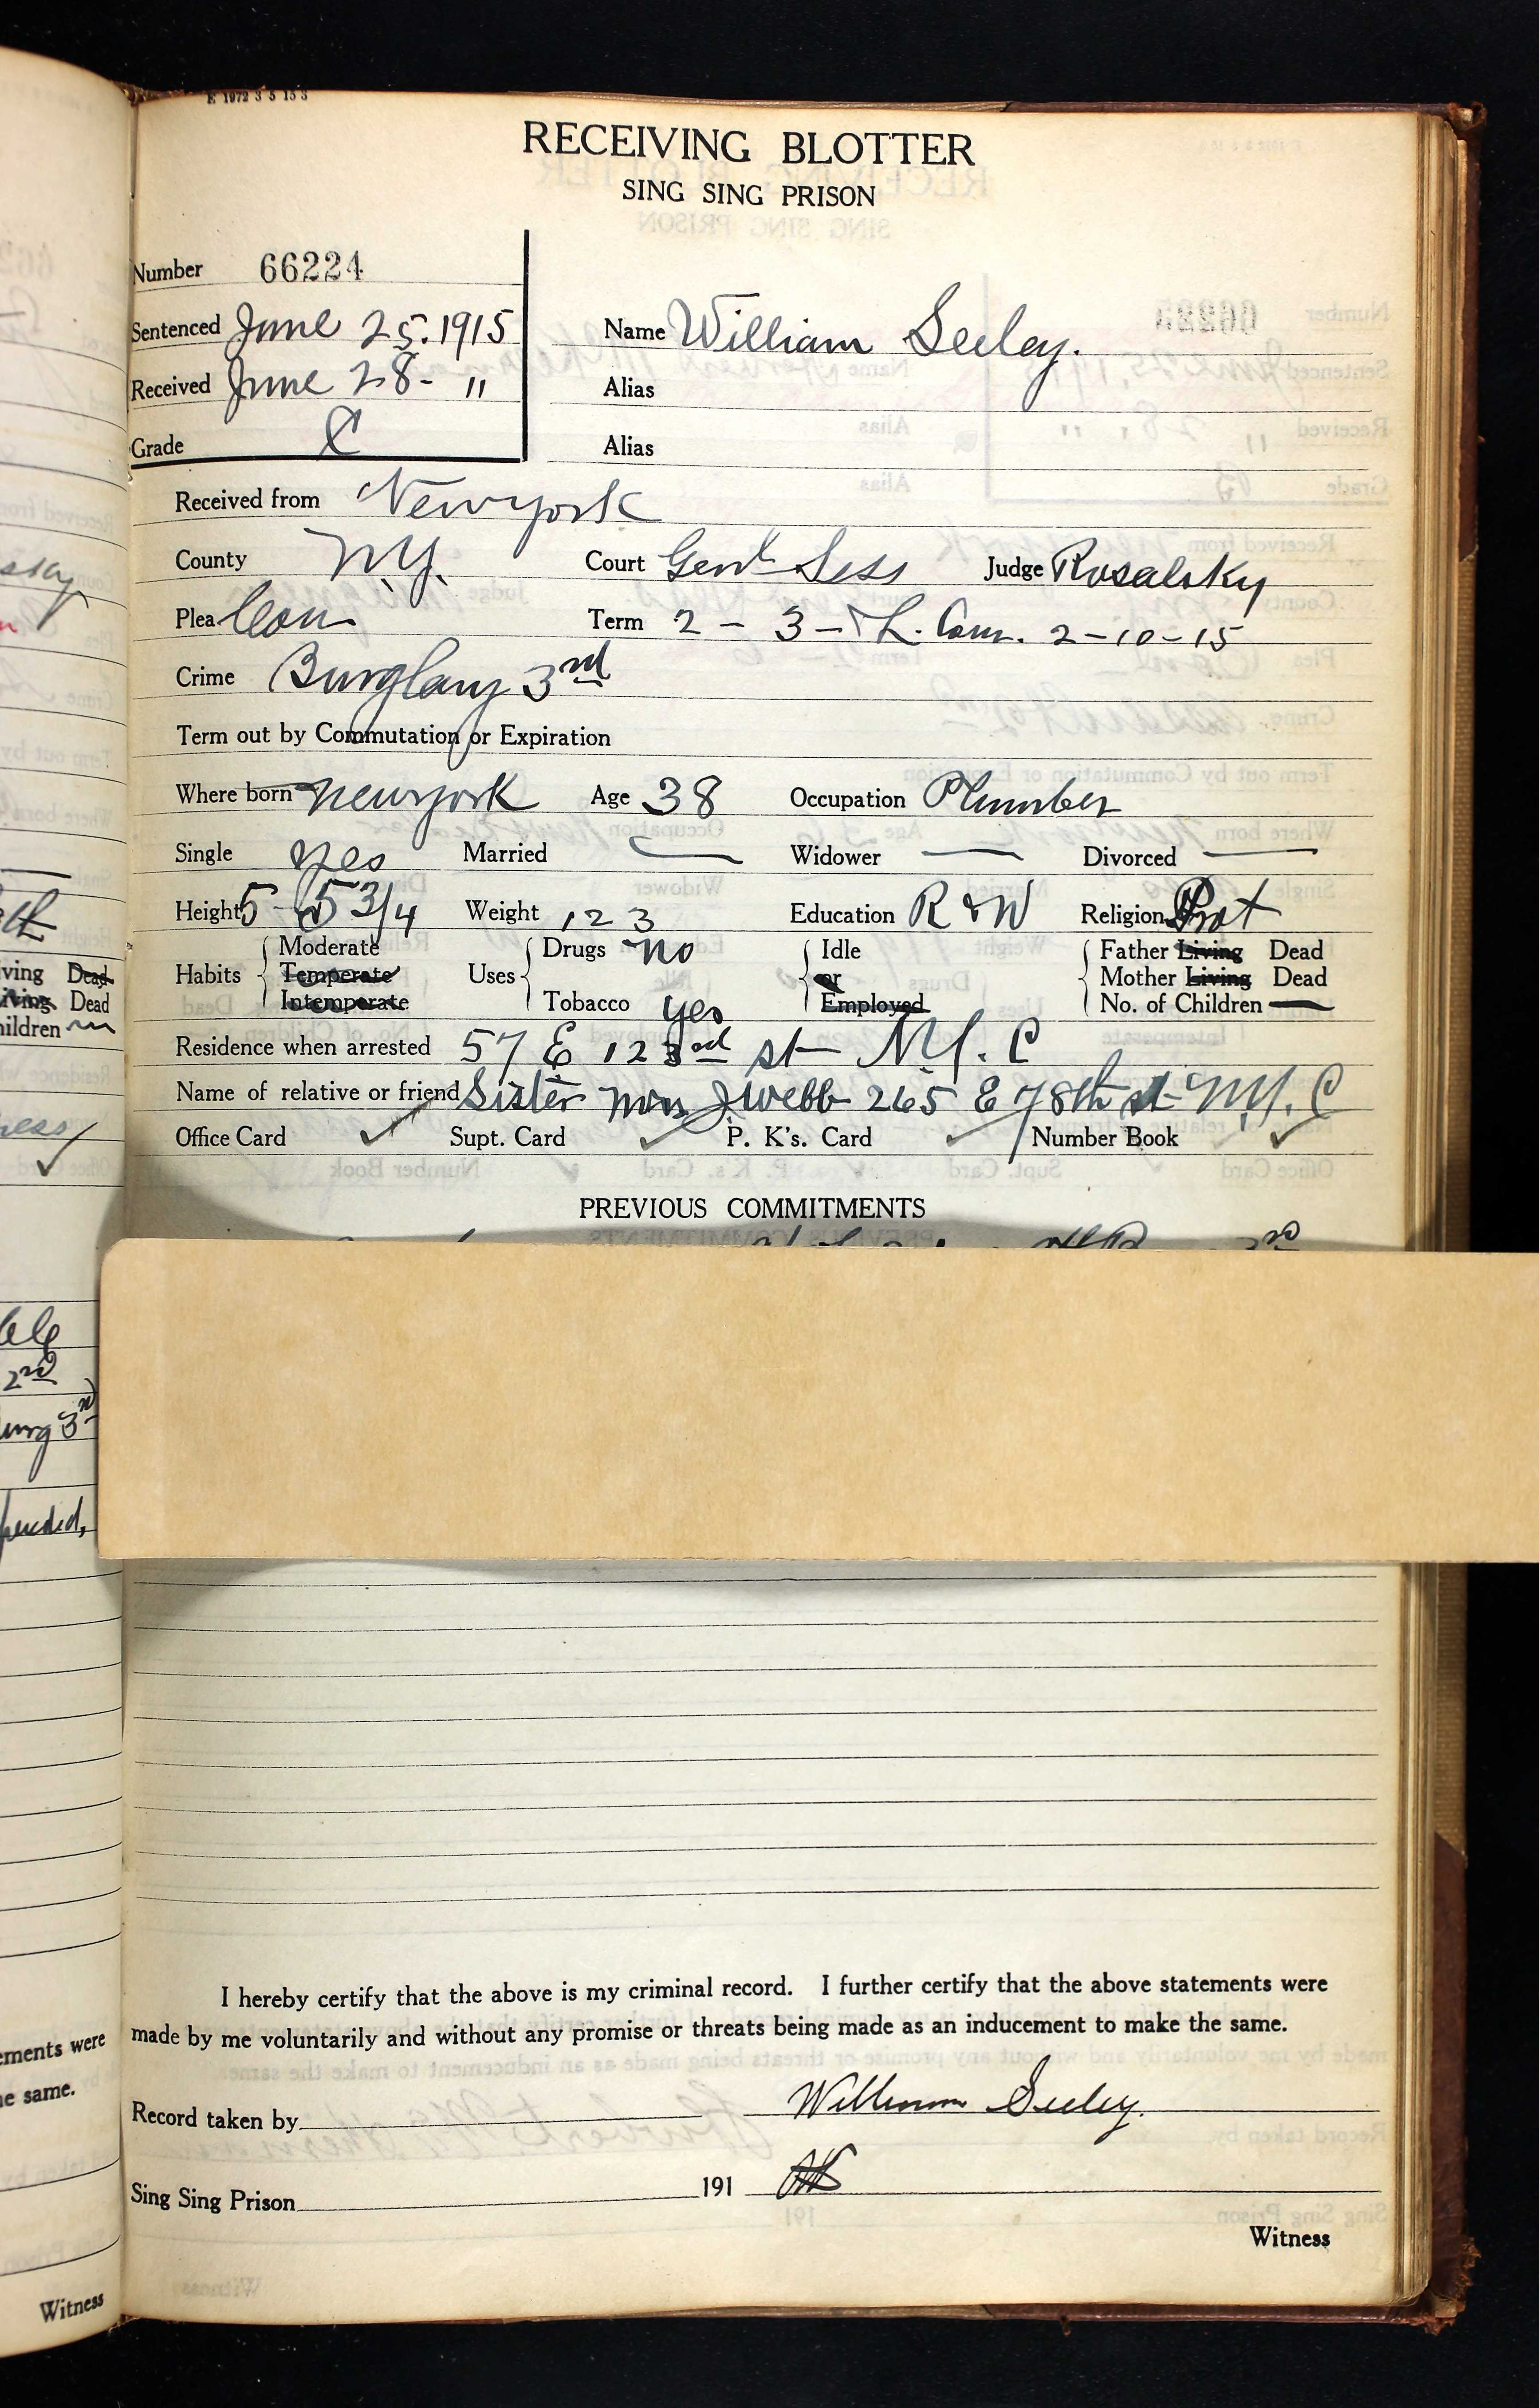 E 1972 3 5 15 S
RECEIVING BLOTTER
SING SING PRISON
Number 66224
Sentenced June 25. 1915
Received June 28 - "
Grade C
Name William Seeley.
Alias
Alias
Received from New york
County N.Y. Court Genl Sess Judge Rosalsky
Plea Con Term 2 - 3 - L. Com. 2-10-15
Crime Burglary 3rd
Term out by Commutation or Expiration
Where born New york Age 38 Occupation Plumber
Single yes Married — Widower — Divorced —
Height 5 - 5 3/4 Weight 123 Education R & W Religion Prot
Habits Moderate Temperate Intemperate Uses Drugs no Tobacco yes Idle or Employed Father Living Dead Mother Living Dead No. of Children —
Residence when arrested 57 E 123rd st N.Y. C
Name of relative or friend Sister Mrs J Webb 265 E 78th st N.Y. C
Office Card ✓ Supt. Card ✓ P. K's. Card ✓ Number Book ✓
PREVIOUS COMMITMENTS
I hereby certify that the above is my criminal record. I further certify that the above statements were
made by me voluntarily and without any promise or threats being made as an inducement to make the same.
Record taken by William Seeley.
Sing Sing Prison 191
Witness
ving Dead
iving Dead
ildren
2nd
urg 3rd
ements were
e same.
Witness